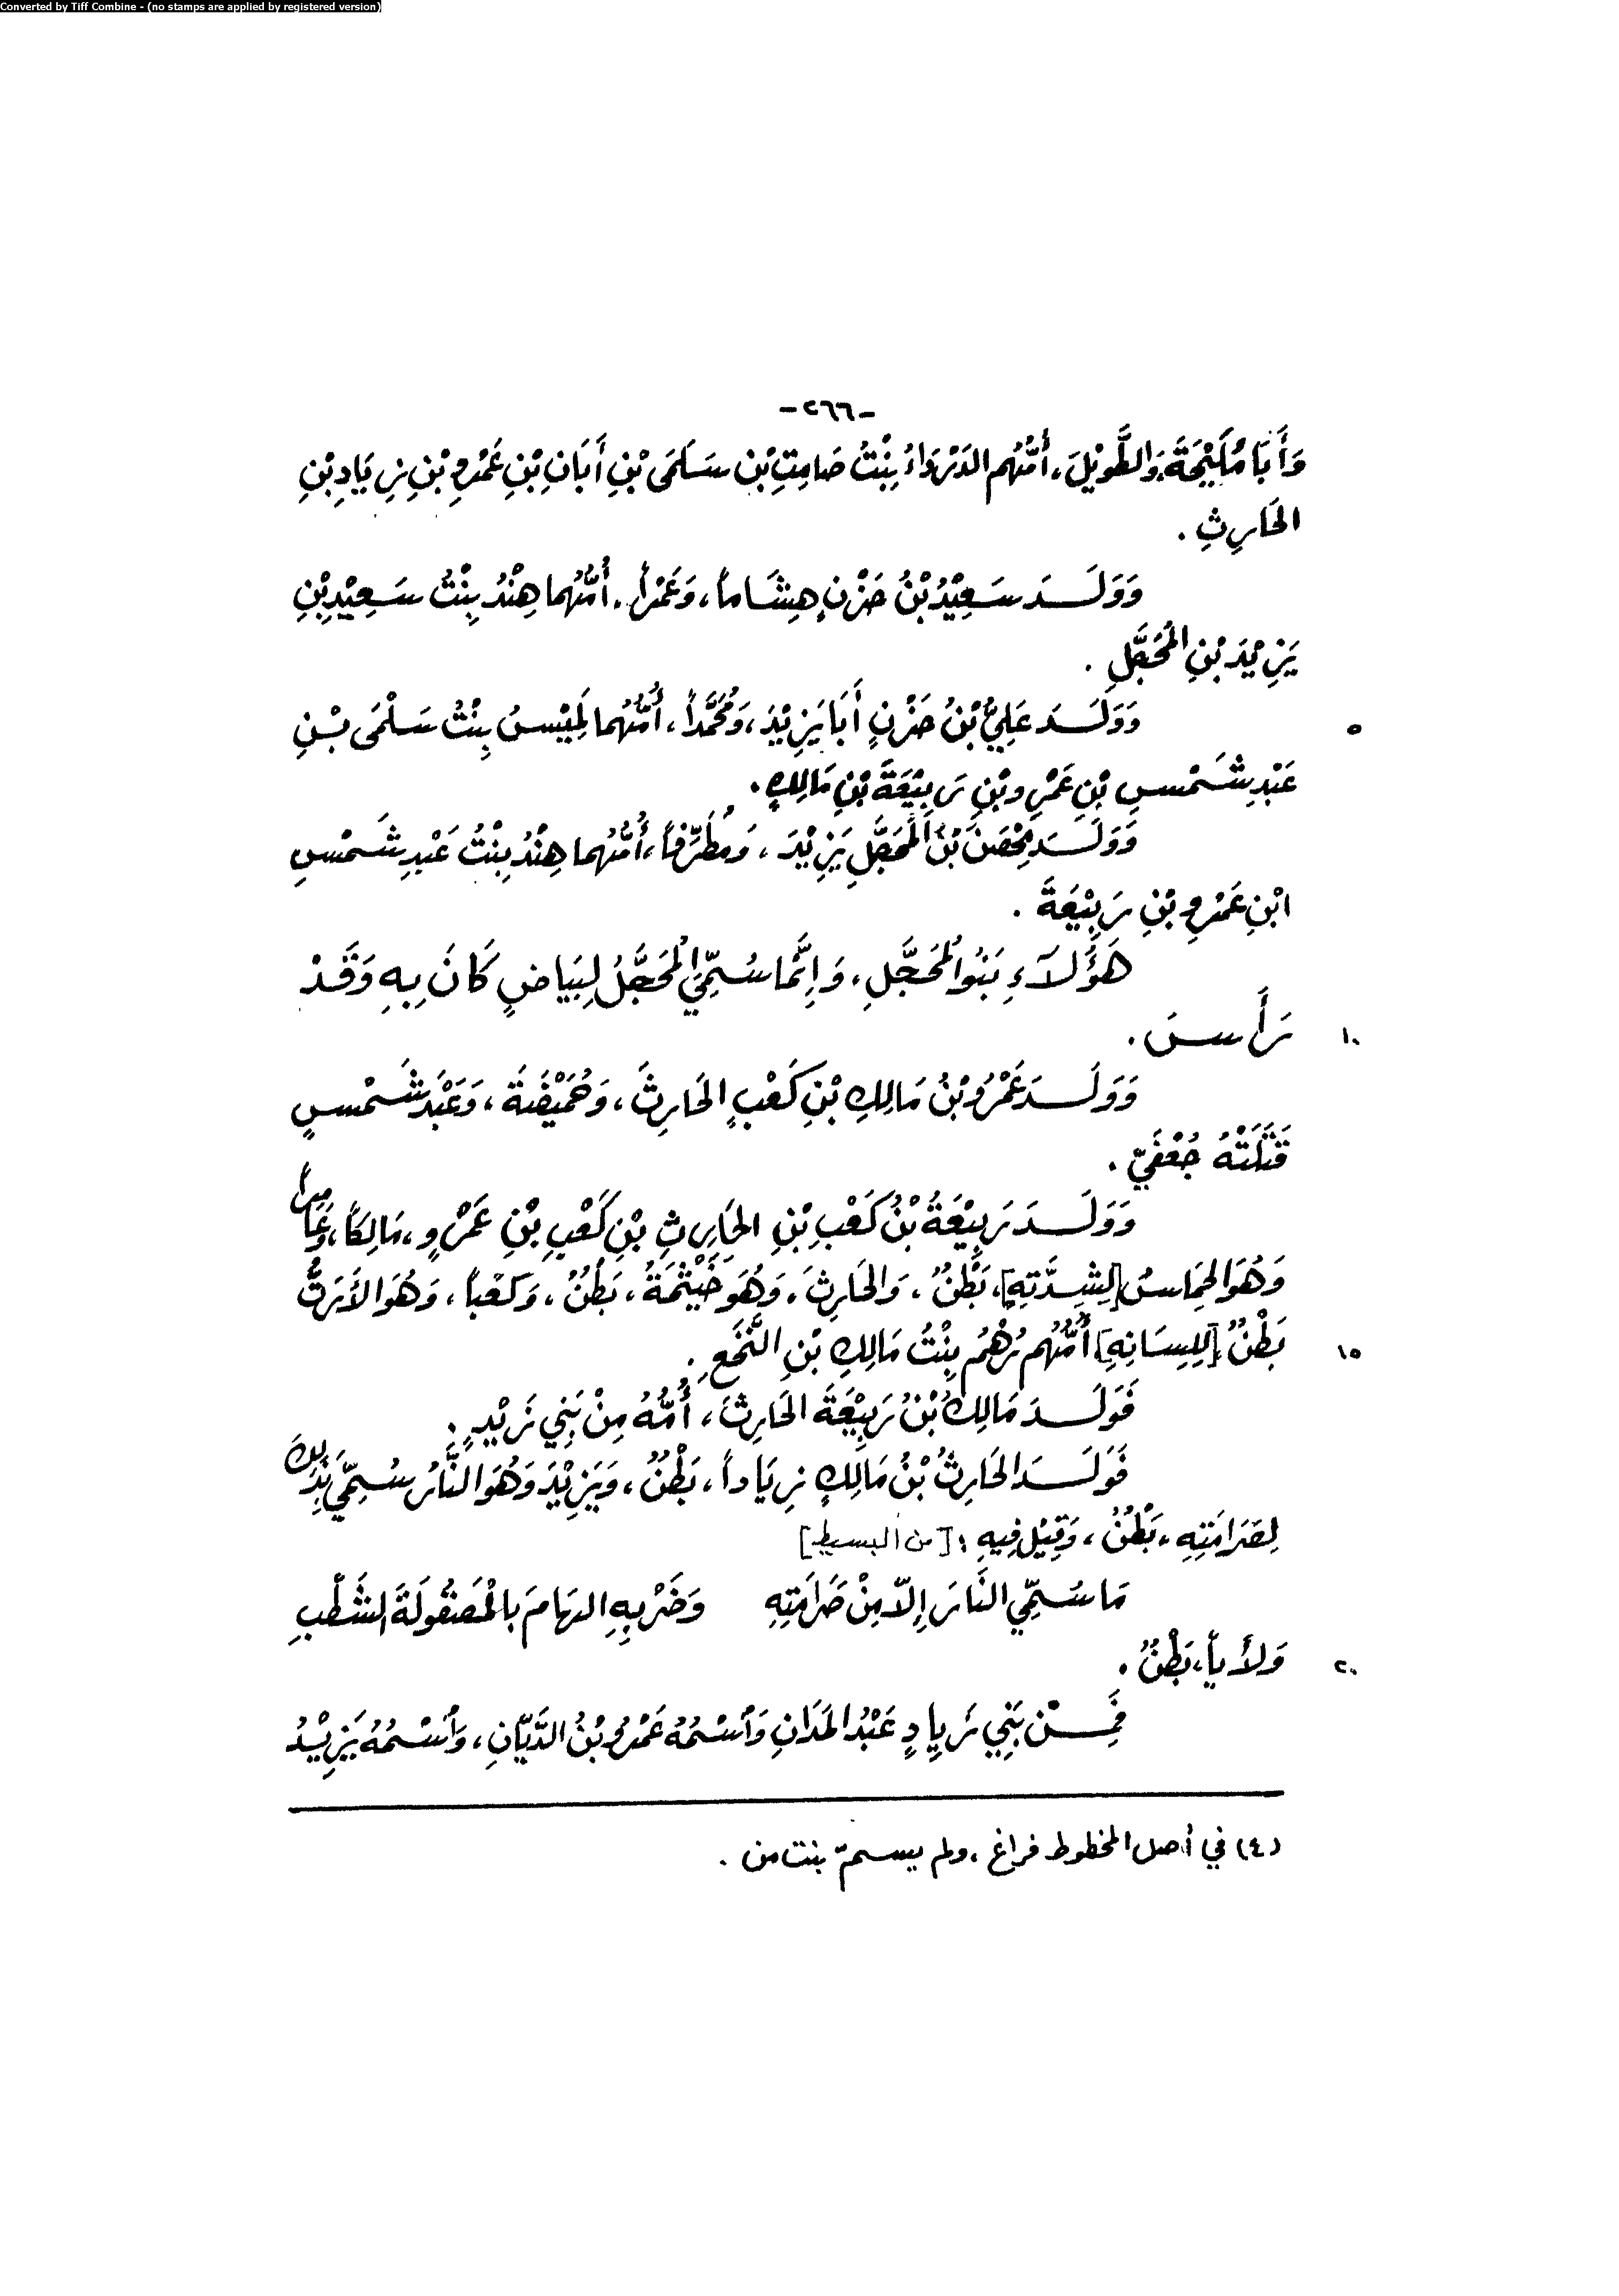 Converted by Tiff Combine - (no stamps are applied by registered version)
-٢٦٦-
وَأَبَا مُلَيْحَةَ، وَالطَّوِيْلَ، أُمُّهُم الدَرْدَاءُ بِنْتُ صَامِتِ بْنِ سَلَمَى بْنِ أَبَانِ بْنِ عَمْرِو بْنِ زِيَادِ بْنِ
الحَارِثِ .
وَوَلَـدَ سَعِيْدُ بْنُ حَزْنٍ هِشَاماً، وَعَمْراً. أُمُّهُما هِنْدُ بِنْتُ سَعِيْدِ بْنِ
يَزِيْدَ بْنِ المُحَجَّلِ .
٥ وَوَلَـدَ عَلِيُّ بْنُ حَزْنٍ أَبَا يَزِيْدَ، وَمُحَمَّداً، أُمُّهُما لَمِيْسُ بِنْتُ سَلْمَى بْنِ
عَبْدِ شَمْسِ بْنِ عَمْرِو بْنِ رَبِيْعَةَ بْنِ مَالِكٍ .
وَوَلَـدَ مِحْصَنُ بْنُ المُحَجَّلِ يَزِيْدَ، وَمُطَرِّفاً، أُمُّهُما هِنْدُ بِنْتُ عَبْدِ شَمْسِ
ابْنِ عَمْرِو بْنِ رَبِيْعَةَ .
هَؤُلَآءِ بَنُو المُحَجَّلِ، وَإِنَّمَا سُمِّيَ المُحَجَّلُ لِبَيَاضٍ كَانَ بِهِ وَقَدْ
١٠ رَأَسَ .
وَوَلَـدَ عَمْرُو بْنُ مَالِكِ بْنِ كَعْبٍ الحَارِثَ، وَهُمَيْضَةَ، وَعَبْدَ شَمْسٍ
قَتَلَتْهُ جُعْفَيّ .
وَوَلَـدَ رَبِيْعَةُ بْنُ كَعْبِ بْنِ الحَارِثِ بْنِ كَعْبِ بْنِ عَمْرٍو، مَالِكاً، وَعَامِراً
وَهُوَ الحِمَاسُ [لِشِدَّتِهِ]، بَطْنٌ، وَالحَارِثَ، وَهُوَ خَيْثَمَةُ، بَطْنٌ، وَكَعْباً، وَهُوَ الأَرَتُّ
١٥ بَطْنٌ [لِلِسَانِهِ] أُمُّهُم رُهْمُ بِنْتُ مَالِكِ بْنِ النَّخَعِ .
فَوَلَـدَ مَالِكُ بْنُ رَبِيْعَةَ الحَارِثَ، أُمُّهُ مِنْ بَنِي زَيْدٍ .
فَوَلَـدَ الحَارِثُ بْنُ مَالِكٍ زِيَاداً، بَطْنٌ، وَيَزِيْدَ وَهُوَ النَّارُ سُمِّيَ بِذَلِكَ
لِصَرَامَتِهِ، بَطْنٌ، وَقِيْلَ فِيهِ : [من البسيط]
مَا سُمِّيَ النَّارَ إِلاّ مِنْ صَرَامَتِهِ وَضَرْبِهِ الهَامَ بالمَصْقُولَةِ الشُطُبِ
٢٠ وَلأْياً، بَطْنٌ .
فَمِـنْ بَنِي زِيَادٍ عَبْدُ المَدَانِ وَٱسْمُهُ عَمْرُو بْنُ الدَّيَّانِ، وَٱسْمُهُ يَزِيْدُ
(٤) في أصل المخطوط فراغ، ولم يسمّ بنت من .